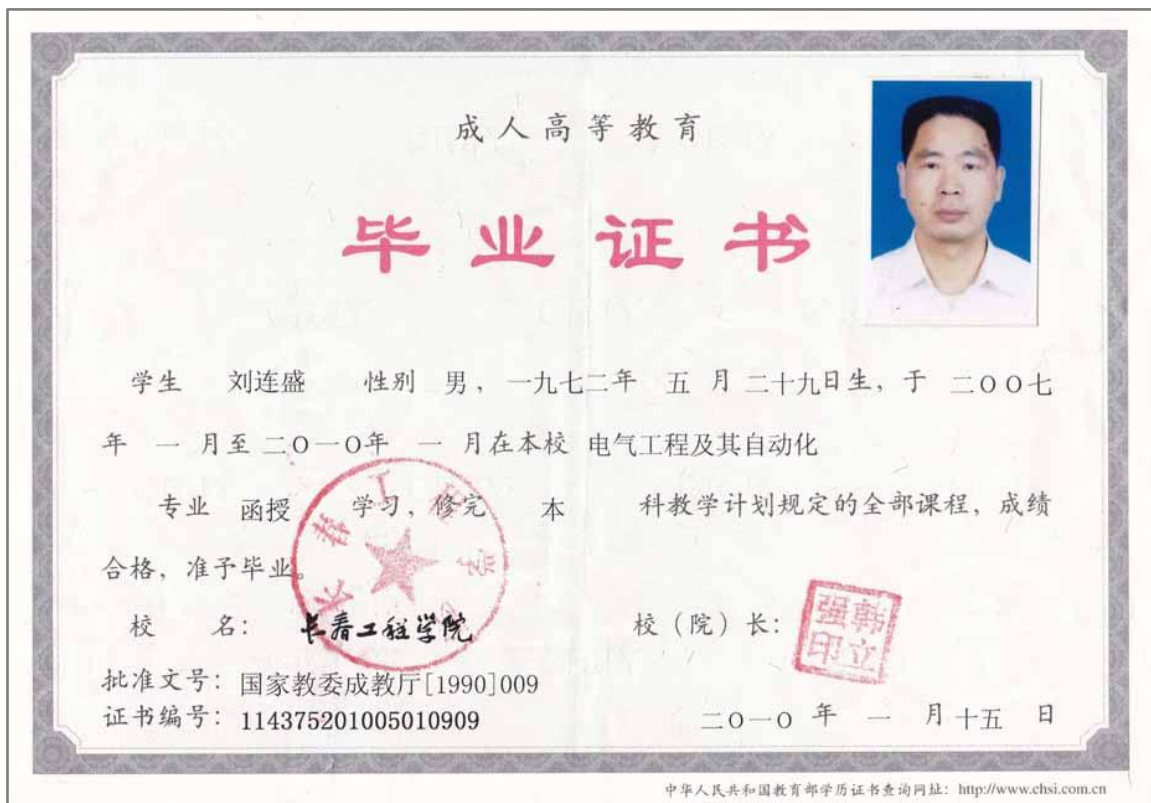 成人高等教育
毕业证书
学生 刘连盛 性别 男，一九七二年 五 月 二十九日生，于 二〇〇七
年 一 月至 二〇一〇年 一 月在本校 电气工程及其自动化
专业 函授 学习，修完 本 科教学计划规定的全部课程，成绩
合格，准予毕业。
校 名： 长春工程学院 校（院）长： 韩立强印
批准文号： 国家教委成教厅[1990]009
证书编号： 114375201005010909 二〇一〇 年 一 月 十五 日
中华人民共和国教育部学历证书查询网址： http://www.chsi.com.cn